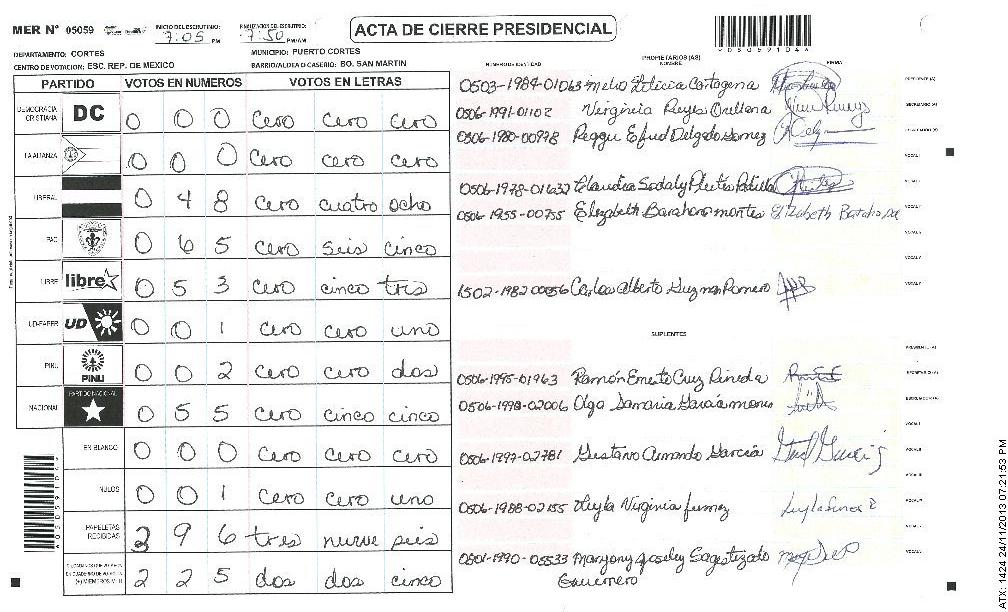 MER Nº 05059
INICIO DEL ESCRUTINIO: 7:05 PM
FINALIZACION DEL ESCRUTINIO: 7:50 PM/AM
ACTA DE CIERRE PRESIDENCIAL
DEPARTAMENTO: CORTES
MUNICIPIO: PUERTO CORTES
CENTRO DE VOTACION: ESC. REP. DE MEXICO
BARRIO/ALDEA O CASERIO: BO. SAN MARTIN
PARTIDO VOTOS EN NUMEROS VOTOS EN LETRAS
DEMOCRACIA CRISTIANA DC 0 0 0 cero cero cero
LA ALIANZA 0 0 0 cero cero cero
LIBERAL 0 4 8 cero cuatro ocho
PAC 0 6 5 cero seis cinco
LIBRE libre 0 5 3 cero cinco tres
UD-FAPER UD 0 0 1 cero cero uno
PINU PINU 0 0 2 cero cero dos
NACIONAL PARTIDO NACIONAL 0 5 5 cero cinco cinco
EN BLANCO 0 0 0 cero cero cero
NULOS 0 0 1 cero cero uno
PAPELETAS RECIBIDAS 3 9 6 tres nueve seis
2 2 5 dos dos cinco
NUMERO DE IDENTIDAD PROPIETARIOS (AS) NOMBRE FIRMA
0503-1984-01063 Leticia Cartagena PRESIDENTE (A)
0506-1991-01102 Virginia Reyes Orellana SECRETARIO (A)
0506-1980-00978 Delgado Gomez ESCRUTADOR (A)
VOCAL I
0506-1978-01632 Claudia
0506-1955-00755 Elizabeth Barahona montes Elizabeth
1502-1982-00056 Carlos Alberto Guzman Romero
SUPLENTES
PRESIDENTE (A)
0506-1995-01963 Ramón Ernesto Cruz Pineda SECRETARIO (A)
0506-1998-02006 Olga Damaria Garcia ESCRUTADOR (A)
VOCAL I
0506-1997-02781 Gustavo Armando Garcia
0506-1988-02155 Leyla Virginia funez
0801-1990-05533
ATX: 1424 24/11/2013 07:21:53 PM